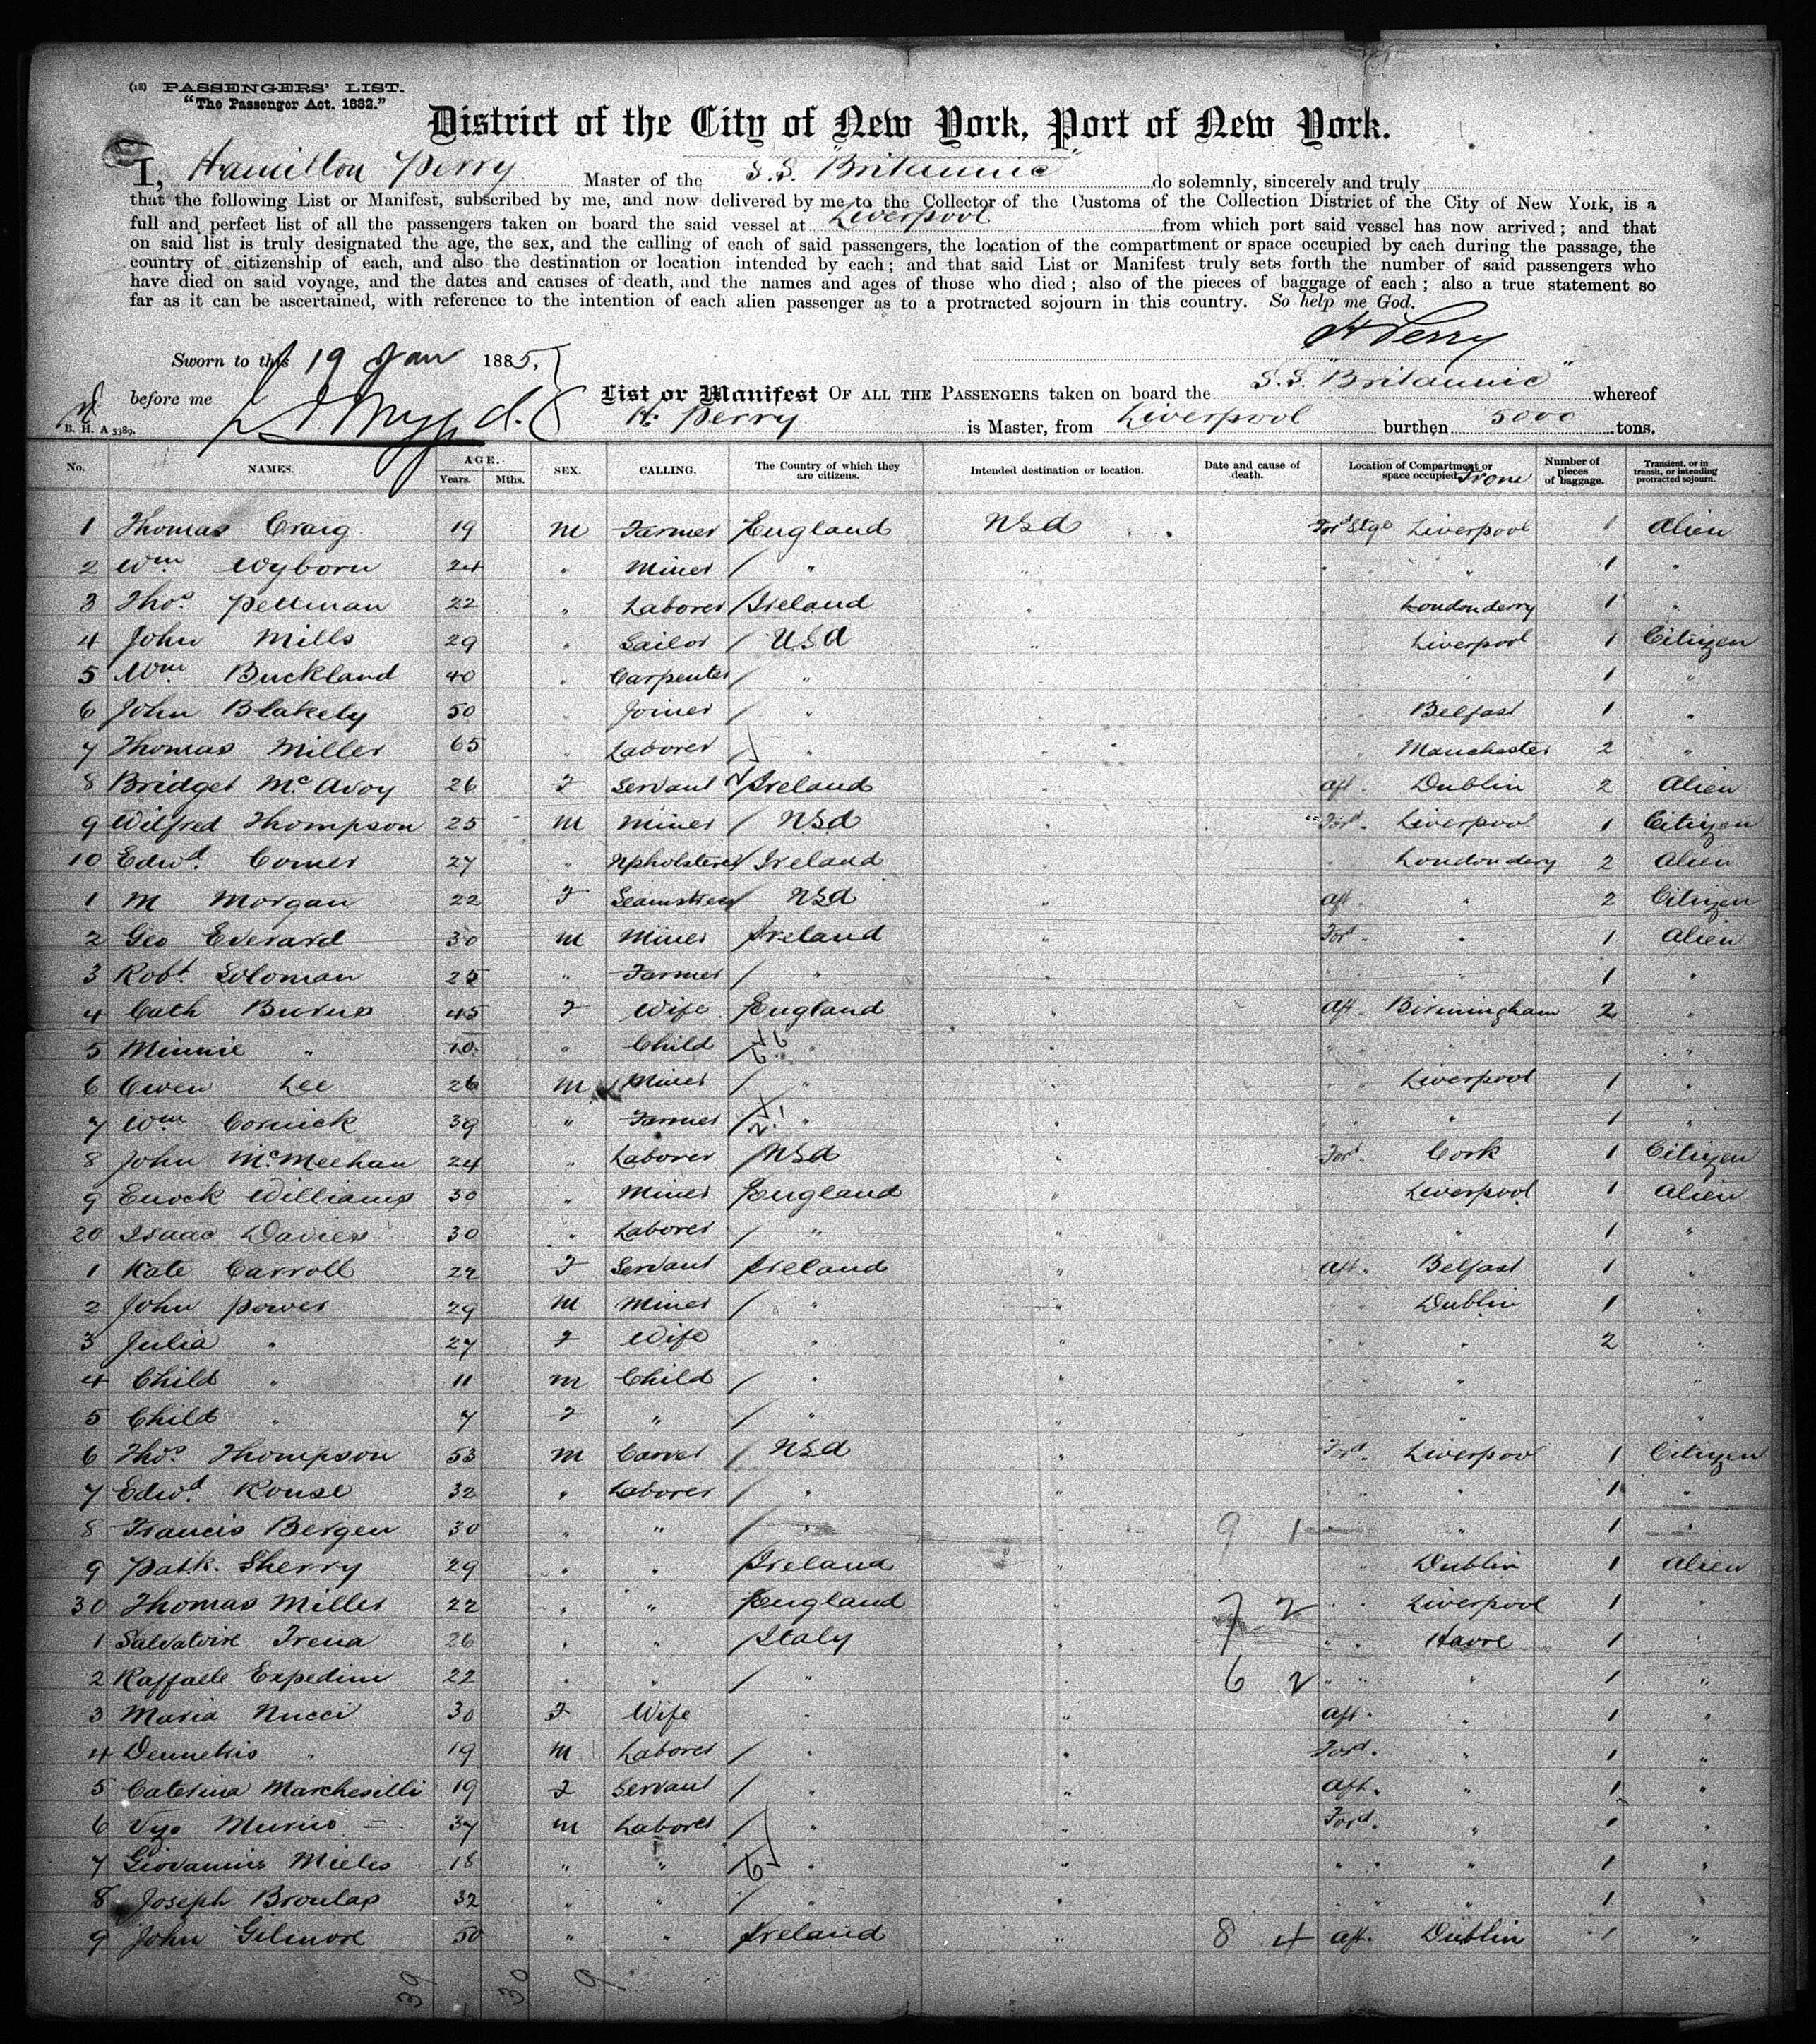 (18) PASSENGERS' LIST.
"The Passenger Act. 1882."
District of the City of New York, Port of New York.
I, Hamilton Perry Master of the S.S. "Britannic" do solemnly, sincerely and truly
that the following List or Manifest, subscribed by me, and now delivered by me to the Collector of the Customs of the Collection District of the City of New York, is a
full and perfect list of all the passengers taken on board the said vessel at Liverpool from which port said vessel has now arrived; and that
on said list is truly designated the age, the sex, and the calling of each of said passengers, the location of the compartment or space occupied by each during the passage, the
country of citizenship of each, and also the destination or location intended by each; and that said List or Manifest truly sets forth the number of said passengers who
have died on said voyage, and the dates and causes of death, and the names and ages of those who died; also of the pieces of baggage of each; also a true statement so
far as it can be ascertained, with reference to the intention of each alien passenger as to a protracted sojourn in this country. So help me God.
H Perry
Sworn to this 19 Jan 1885,
before me
List or Manifest OF ALL THE PASSENGERS taken on board the S.S. "Britannic" whereof
B. H. A 5389. H. Perry is Master, from Liverpool burthen 5000 tons.
No. NAMES. AGE. Years. Mths. SEX. CALLING. The Country of which they are citizens. Intended destination or location. Date and cause of death. Location of Compartment or space occupied. From Number of pieces of baggage. Transient, or in transit, or intending protracted sojourn.
1 Thomas Craig 19 M Farmer England USA Ford Stge Liverpool 1 Alien
2 Wm Wyborn 24 " Miner / " " " " 1 "
3 Thos. Pettman 22 " Laborer / Ireland " Londonderry 1 "
4 John Mills 29 " Sailor / USA " Liverpool 1 Citizen
5 Wm Buckland 40 " Carpenter / " " 1 "
6 John Blakely 50 " Joiner / " " Belfast 1 "
7 Thomas Miller 65 " Laborer / " " Manchester 2 "
8 Bridget McAvoy 26 F Servant Ireland " aft. Dublin 2 Alien
9 Wilfred Thompson 25 M Miner / USA " Ford. Liverpool 1 Citizen
10 Edwd. Comer 27 " Upholsterer / Ireland " " Londondery 2 Alien
1 M Morgan 22 F Seamstress / USA " aft. " 2 Citizen
2 Geo Everard 30 M Miner Ireland " Ford. " 1 Alien
3 Robt. Soloman 25 " Farmer / " " " 1 "
4 Cath Burns 45 F Wife England " Aft. Birmingham 2 "
5 Minnie " 10 " Child / " " " "
6 Owen Lee 26 M Miner / " " Liverpool 1 "
7 Wm Cornick 39 " Farmer / " " " 1 "
8 John McMeehan 24 " Laborer / USA " Ford. Cork 1 Citizen
9 Enock Williams 30 " Miner England " Liverpool 1 Alien
20 Isaac Davies 30 " Laborer / " " " 1 "
1 Kate Carroll 22 F Servant Ireland " Aft. Belfast 1 "
2 John Power 29 M Miner / " " Dublin 1 "
3 Julia " 27 F Wife " " " 2 "
4 Child " 11 M Child / " " " "
5 Child " 7 F " / " " " "
6 Thos. Thompson 53 M Carver / USA " Ford. Liverpool 1 Citizen
7 Edwd. Rouse 32 " Laborer / " " " 1 "
8 Francis Bergen 30 " " / " 9 1 " 1 "
9 Patk. Sherry 29 " " Ireland " Dublin 1 Alien
30 Thomas Miller 22 " " England " 7 2 Liverpool 1 "
1 Salvatoire Trena 26 " " / Italy " 7 Havre 1 "
2 Raffaele Expedini 22 " " / " " 6 2 " 1 "
3 Maria Nucci 30 F Wife " " aft. " 1 "
4 Demetrio " 19 M Laborer / " " Ford. " 1 "
5 Caterina Marchesilli 19 F Servant / " " aft. " 1 "
6 Murino 37 M Laborer / " " Ford. " 1 "
7 Giovannie Mieles 18 " " / " " " 1 "
8 Joseph Broulas 32 " " / " " " 1 "
9 John Gilmore 50 " " Ireland " 8 4 aft. Dublin 1 "
39 30 9